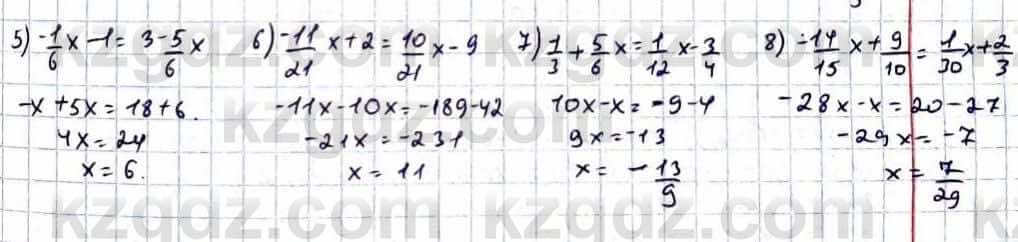 5) -1/6 x - 1 = 3 - 5/6 x
-x + 5x = 18 + 6.
4x = 24
x = 6.
6) -11/21 x + 2 = 10/21 x - 9
-11x - 10x = -189 - 42
-21x = -231
x = 11
7) 1/3 + 5/6 x = 1/12 x - 3/4
10x - x = -9 - 4
9x = -13
x = - 13/9
8) -14/15 x + 9/10 = 1/30 x + 2/3
-28x - x = 20 - 27
-29x = -7
x = 7/29
kzgdz.com